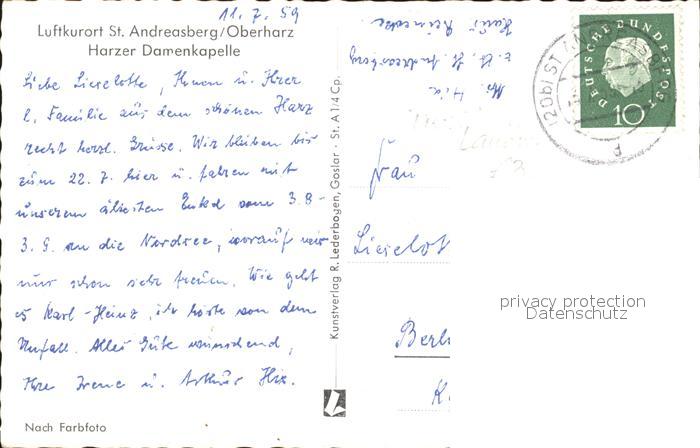 11. 7. 59
Luftkurort St. Andreasberg/Oberharz
Harzer Damenkapelle
Liebe Lieselotte, Ihnen u. Ihrer
l. Familie aus dem schönen Harz
recht herzl. Grüsse. Wir bleiben bis
zum 22. 7. hier u. fahren mit
unserem ältesten Enkel vom 3.8-
3. 9. an die Nordsee, worauf wir
uns schon sehr freuen. Wie geht
es Karl-Heinz, ich hörte von dem
Unfall. Alles Gute wünschend,
Ihre Irene u. Arthur Hix.
Nach Farbfoto
Kunstverlag R. Lederbogen, Goslar · St. A 11/4 Cp.
z. Zt. St. Andreasberg
Haus
Frau
Lieselot
Berl
DEUTSCHE BUNDESPOST
10
(20b) ST. ANDREASB
privacy protection
Datenschutz